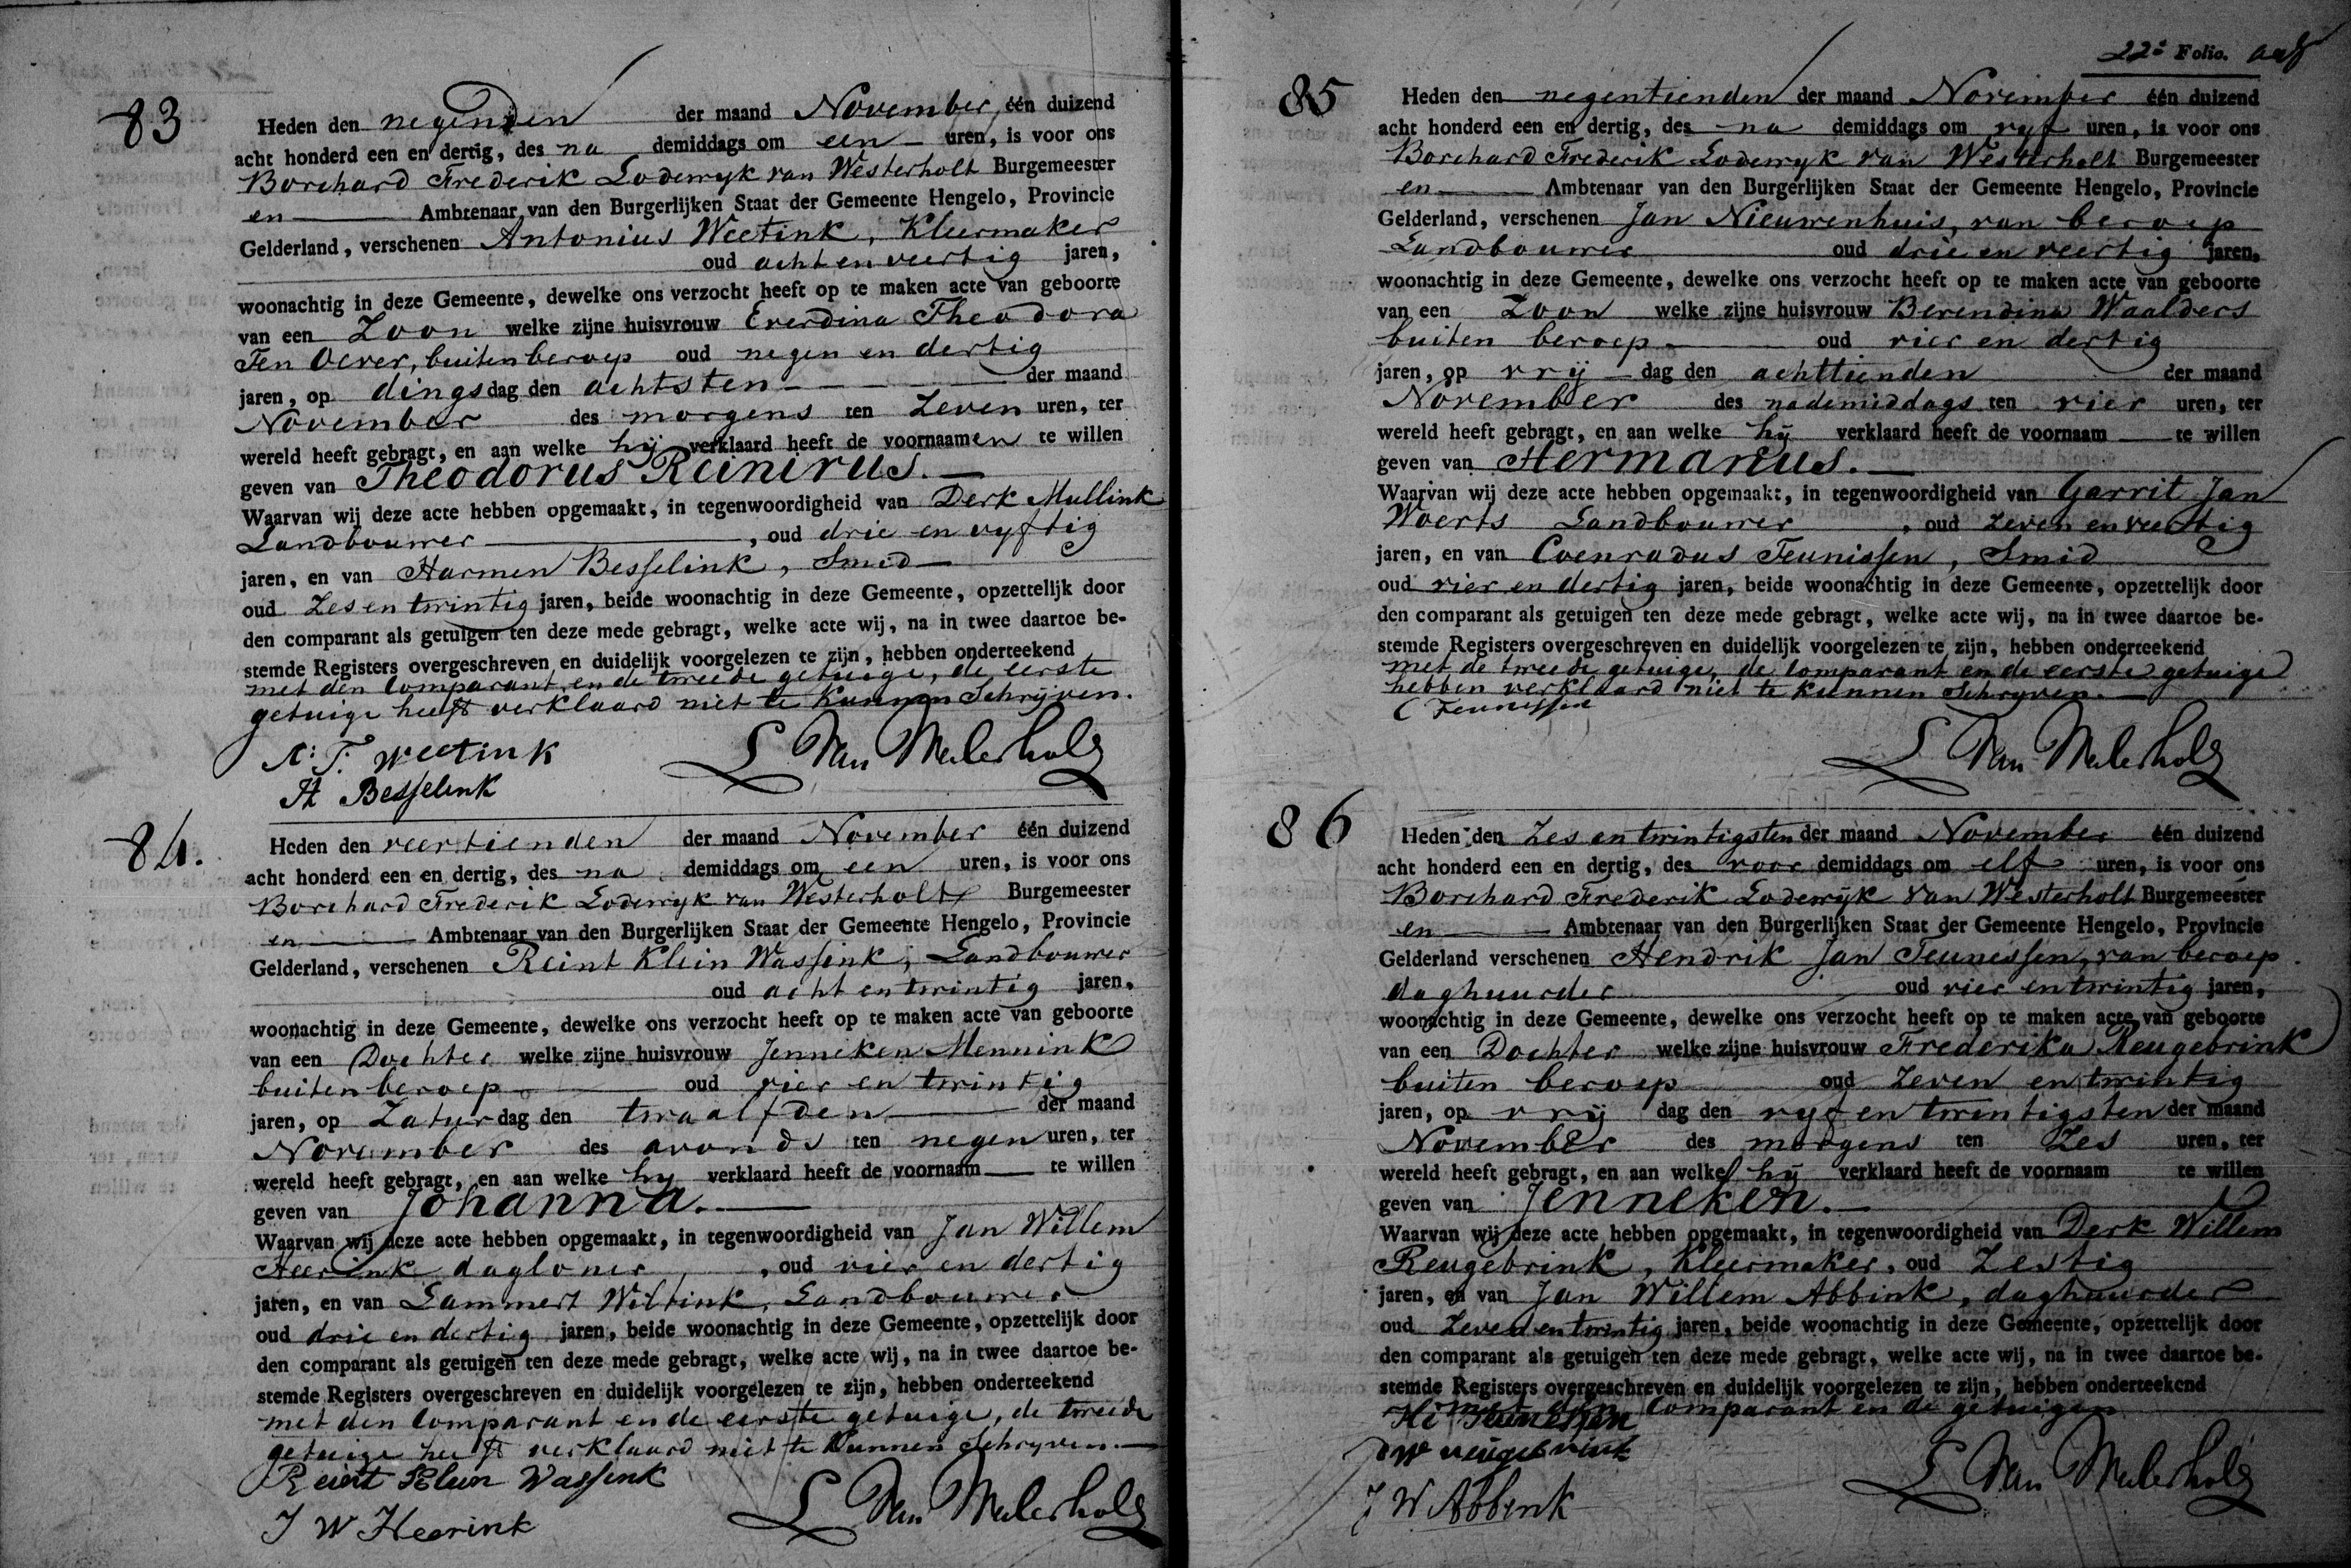 83
Heden den negenden der maand November één duizend
acht honderd een en dertig, des na demiddags om een uren, is voor ons
Borchard Frederik Lodewyk van Westerholt Burgemeester
en Ambtenaar van den Burgerlijken Staat der Gemeente Hengelo, Provincie
Gelderland, verschenen Antonius Weetink, Kleermaker
oud acht en veertig jaren,
woonachtig in deze Gemeente, dewelke ons verzocht heeft op te maken acte van geboorte
van een Zoon welke zijne huisvrouw Everdina Theodora
Ten Oever, buiten beroep oud negen en dertig
jaren, op dingsdag den achtsten der maand
November des morgens ten Zeven uren, ter
wereld heeft gebragt, en aan welke hij verklaard heeft de voornaamen te willen
geven van Theodorus Reinirus.
Waarvan wij deze acte hebben opgemaakt, in tegenwoordigheid van Derk Mullink
Landbouwer, oud drie en vyftig
jaren, en van Harmen Besselink, Smid
oud Zes en twintig jaren, beide woonachtig in deze Gemeente, opzettelijk door
den comparant als getuigen ten deze mede gebragt, welke acte wij, na in twee daartoe be-
stemde Registers overgeschreven en duidelijk voorgelezen te zijn, hebben onderteekend
met den Comparant en de tweede getuige, de eerste
getuige heeft verklaard niet te Kunnen Schrijven.
A: T. Weetink
L Van Westerholt
H Besselink
84.
Heden den veertienden der maand November één duizend
acht honderd een en dertig, des na demiddags om een uren, is voor ons
Borchard Frederik Lodewyk van Westerholt Burgemeester
en Ambtenaar van den Burgerlijken Staat der Gemeente Hengelo, Provincie
Gelderland, verschenen Reint Klein Wassink, Landbouwer
oud acht en twintig jaren,
woonachtig in deze Gemeente, dewelke ons verzocht heeft op te maken acte van geboorte
van een Dochter welke zijne huisvrouw Jenneken Mennink
buiten beroep oud vier en twintig
jaren, op Zaturdag den twaalfden der maand
November des avonds ten negen uren, ter
wereld heeft gebragt, en aan welke hy verklaard heeft de voornaam te willen
geven van Johanna.
Waarvan wij deze acte hebben opgemaakt, in tegenwoordigheid van Jan Willem
Heerink dagloner, oud vier en dertig
jaren, en van Lammert Wiltink, Landbouwer
oud drie en dertig jaren, beide woonachtig in deze Gemeente, opzettelijk door
den comparant als getuigen ten deze mede gebragt, welke acte wij, na in twee daartoe be-
stemde Registers overgeschreven en duidelijk voorgelezen te zijn, hebben onderteekend
met den Comparant en de eerste getuige, de tweede
getuige heeft verklaard niet te Kunnen Schryven.
Reint Klein Wassink
J W Heerink
L Van Westerholt
22e Folio.
85
Heden den negentienden der maand November één duizend
acht honderd een en dertig, des na demiddags om vyf uren, is voor ons
Borchard Frederik Lodewyk van Westerholt Burgemeester
en Ambtenaar van den Burgerlijken Staat der Gemeente Hengelo, Provincie
Gelderland, verschenen Jan Nieuwenhuis, van beroep
Landbouwer oud drie en veertig jaren,
woonachtig in deze Gemeente, dewelke ons verzocht heeft op te maken acte van geboorte
van een Zoon welke zijne huisvrouw Berendina Waalders
buiten beroep oud vier en dertig
jaren, op vrij dag den achttienden der maand
November des nademiddags ten vier uren, ter
wereld heeft gebragt, en aan welke hij verklaard heeft de voornaam te willen
geven van Hermanus.
Waarvan wij deze acte hebben opgemaakt, in tegenwoordigheid van Garrit Jan
Woerts Landbouwer, oud Zeven en veertig
jaren, en van Coenradus Teunissen, Smid
oud vier en dertig jaren, beide woonachtig in deze Gemeente, opzettelijk door
den comparant als getuigen ten deze mede gebragt, welke acte wij, na in twee daartoe be-
stemde Registers overgeschreven en duidelijk voorgelezen te zijn, hebben onderteekend
met de tweede getuige, de Comparant en de eerste getuige
hebben verklaard niet te kunnen Schryven.
C Teunissen
L Van Westerholt
86
Heden den Zes en twintigsten der maand November één duizend
acht honderd een en dertig, des voor demiddags om elf uren, is voor ons
Borchard Frederik Lodewijk Van Westerholt Burgemeester
en Ambtenaar van den Burgerlijken Staat der Gemeente Hengelo, Provincie
Gelderland verschenen Hendrik Jan Teunissen, van beroep
daghuurder oud vier en twintig jaren,
woonachtig in deze Gemeente, dewelke ons verzocht heeft op te maken acte van geboorte
van een Dochter welke zijne huisvrouw Frederika Reugebrink
buiten beroep oud Zeven en twintig
jaren, op vrij dag den vyf en twintigsten der maand
November des morgens ten Zes uren, ter
wereld heeft gebragt, en aan welke hij verklaard heeft de voornaam te willen
geven van Jenneken.
Waarvan wij deze acte hebben opgemaakt, in tegenwoordigheid van Derk Willem
Reugebrink, Kleermaker, oud Zestig
jaren, en van Jan Willem Abbink, daghuurder
oud Zeven en twintig jaren, beide woonachtig in deze Gemeente, opzettelijk door
den comparant als getuigen ten deze mede gebragt, welke acte wij, na in twee daartoe be-
stemde Registers overgeschreven en duidelijk voorgelezen te zijn, hebben onderteekend
met den Comparant en de getuigen
Teunissen
DW reugebrink
J W Abbink
L Van Westerholt